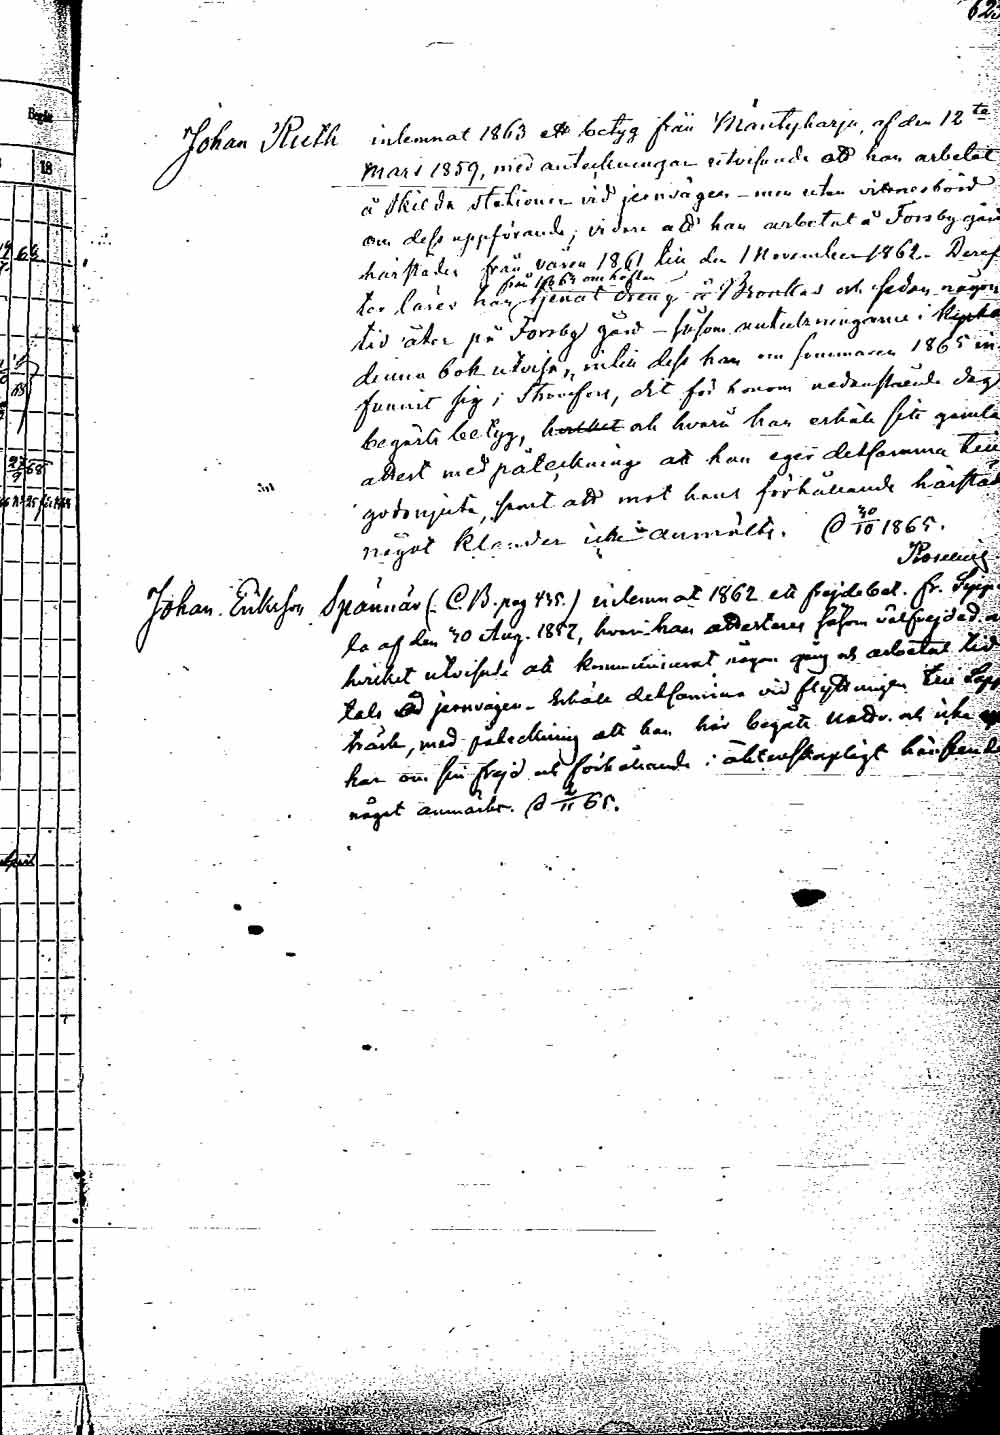 623
Begär
18
Johan Ruth inlemnat 1863 ett betyg från Mäntyharju, af den 12te
Mars 1859, med anteckningar utvisande att han arbetat
å skilda stationer vid jernvägen – men utan vitnesbörd
om dess uppförande; vidare att han arbetat å Forsby gård
härstädes från våren 1861 till den 1 November 1862. Deref
från 1863 om hösten
ter lärer han tjenat dreng å och sedan någon
tid åter på Forsby gård – såsom anteckningarne i
denna bok utvisa, intill dess han om sommaren 1865 in
funnit sig i , dit för honom nedanstående dag
begärts betyg, och hvarå han erhåller sitt gamla
attest med påteckning att han eger detsamma till
godonjuta, samt att mot hans förhållande härstädes
något klander icke anmälts. D 30/10 1865.
Johan Eriksson Spännär (C.B. pag 435.) inlemnat 1862 ett frejdebet. fr.
la af den 30 Aug. 1857, hvari han attesteras såsom välfrejdad
hvilket utvisade att kommunicerat någon gång och arbetat tid
tals vid jernvägen – Erhåller detsamma vid flyttningen till
träsk, med påteckning att han här begått Nattv. och icke
har om sin frejd och förhållande i äktenskapligt hänseende
något anmärkt. D 2/11 65.